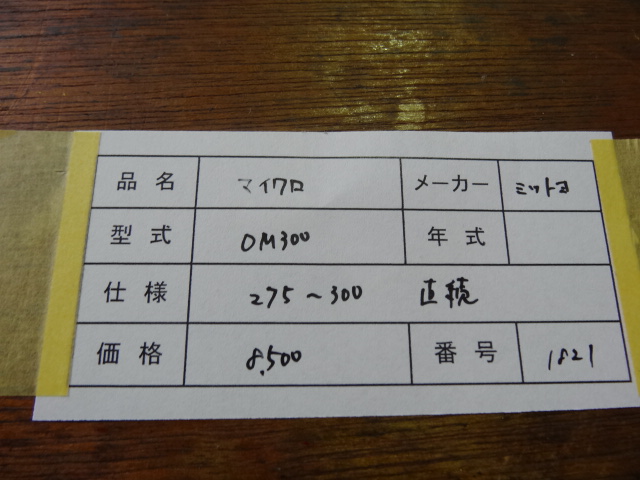 品名 マイクロ メーカー ミツトヨ
型式 OM300 年式
仕様 275～300 直読
価格 8,500 番号 1821